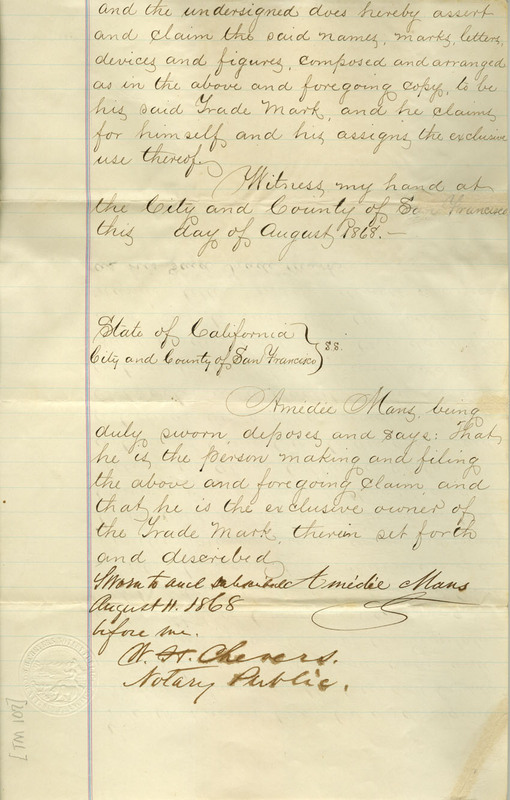 and the undersigned does hereby assert
and claim the said names, marks, letters,
devices and figures, composed and arranged
as in the above and foregoing copy, to be
his said Trade Mark, and he claims
for himself and his assigns, the exclusive
use thereof.
Witness my hand at
the City and County of San Francisco
this day of August 1868.—
State of California
City and County of San Francisco } SS.
Amédée Mans, being
duly sworn, deposes and says: That
he is the person making and filing
the above and foregoing claim and
that he is the exclusive owner of
the Trade Mark, therein set forth
and described
Sworn to and subscribed Amédée Mans
August 11. 1868
before me.
W. H. Chevers.
Notary Public.
[TM 107]